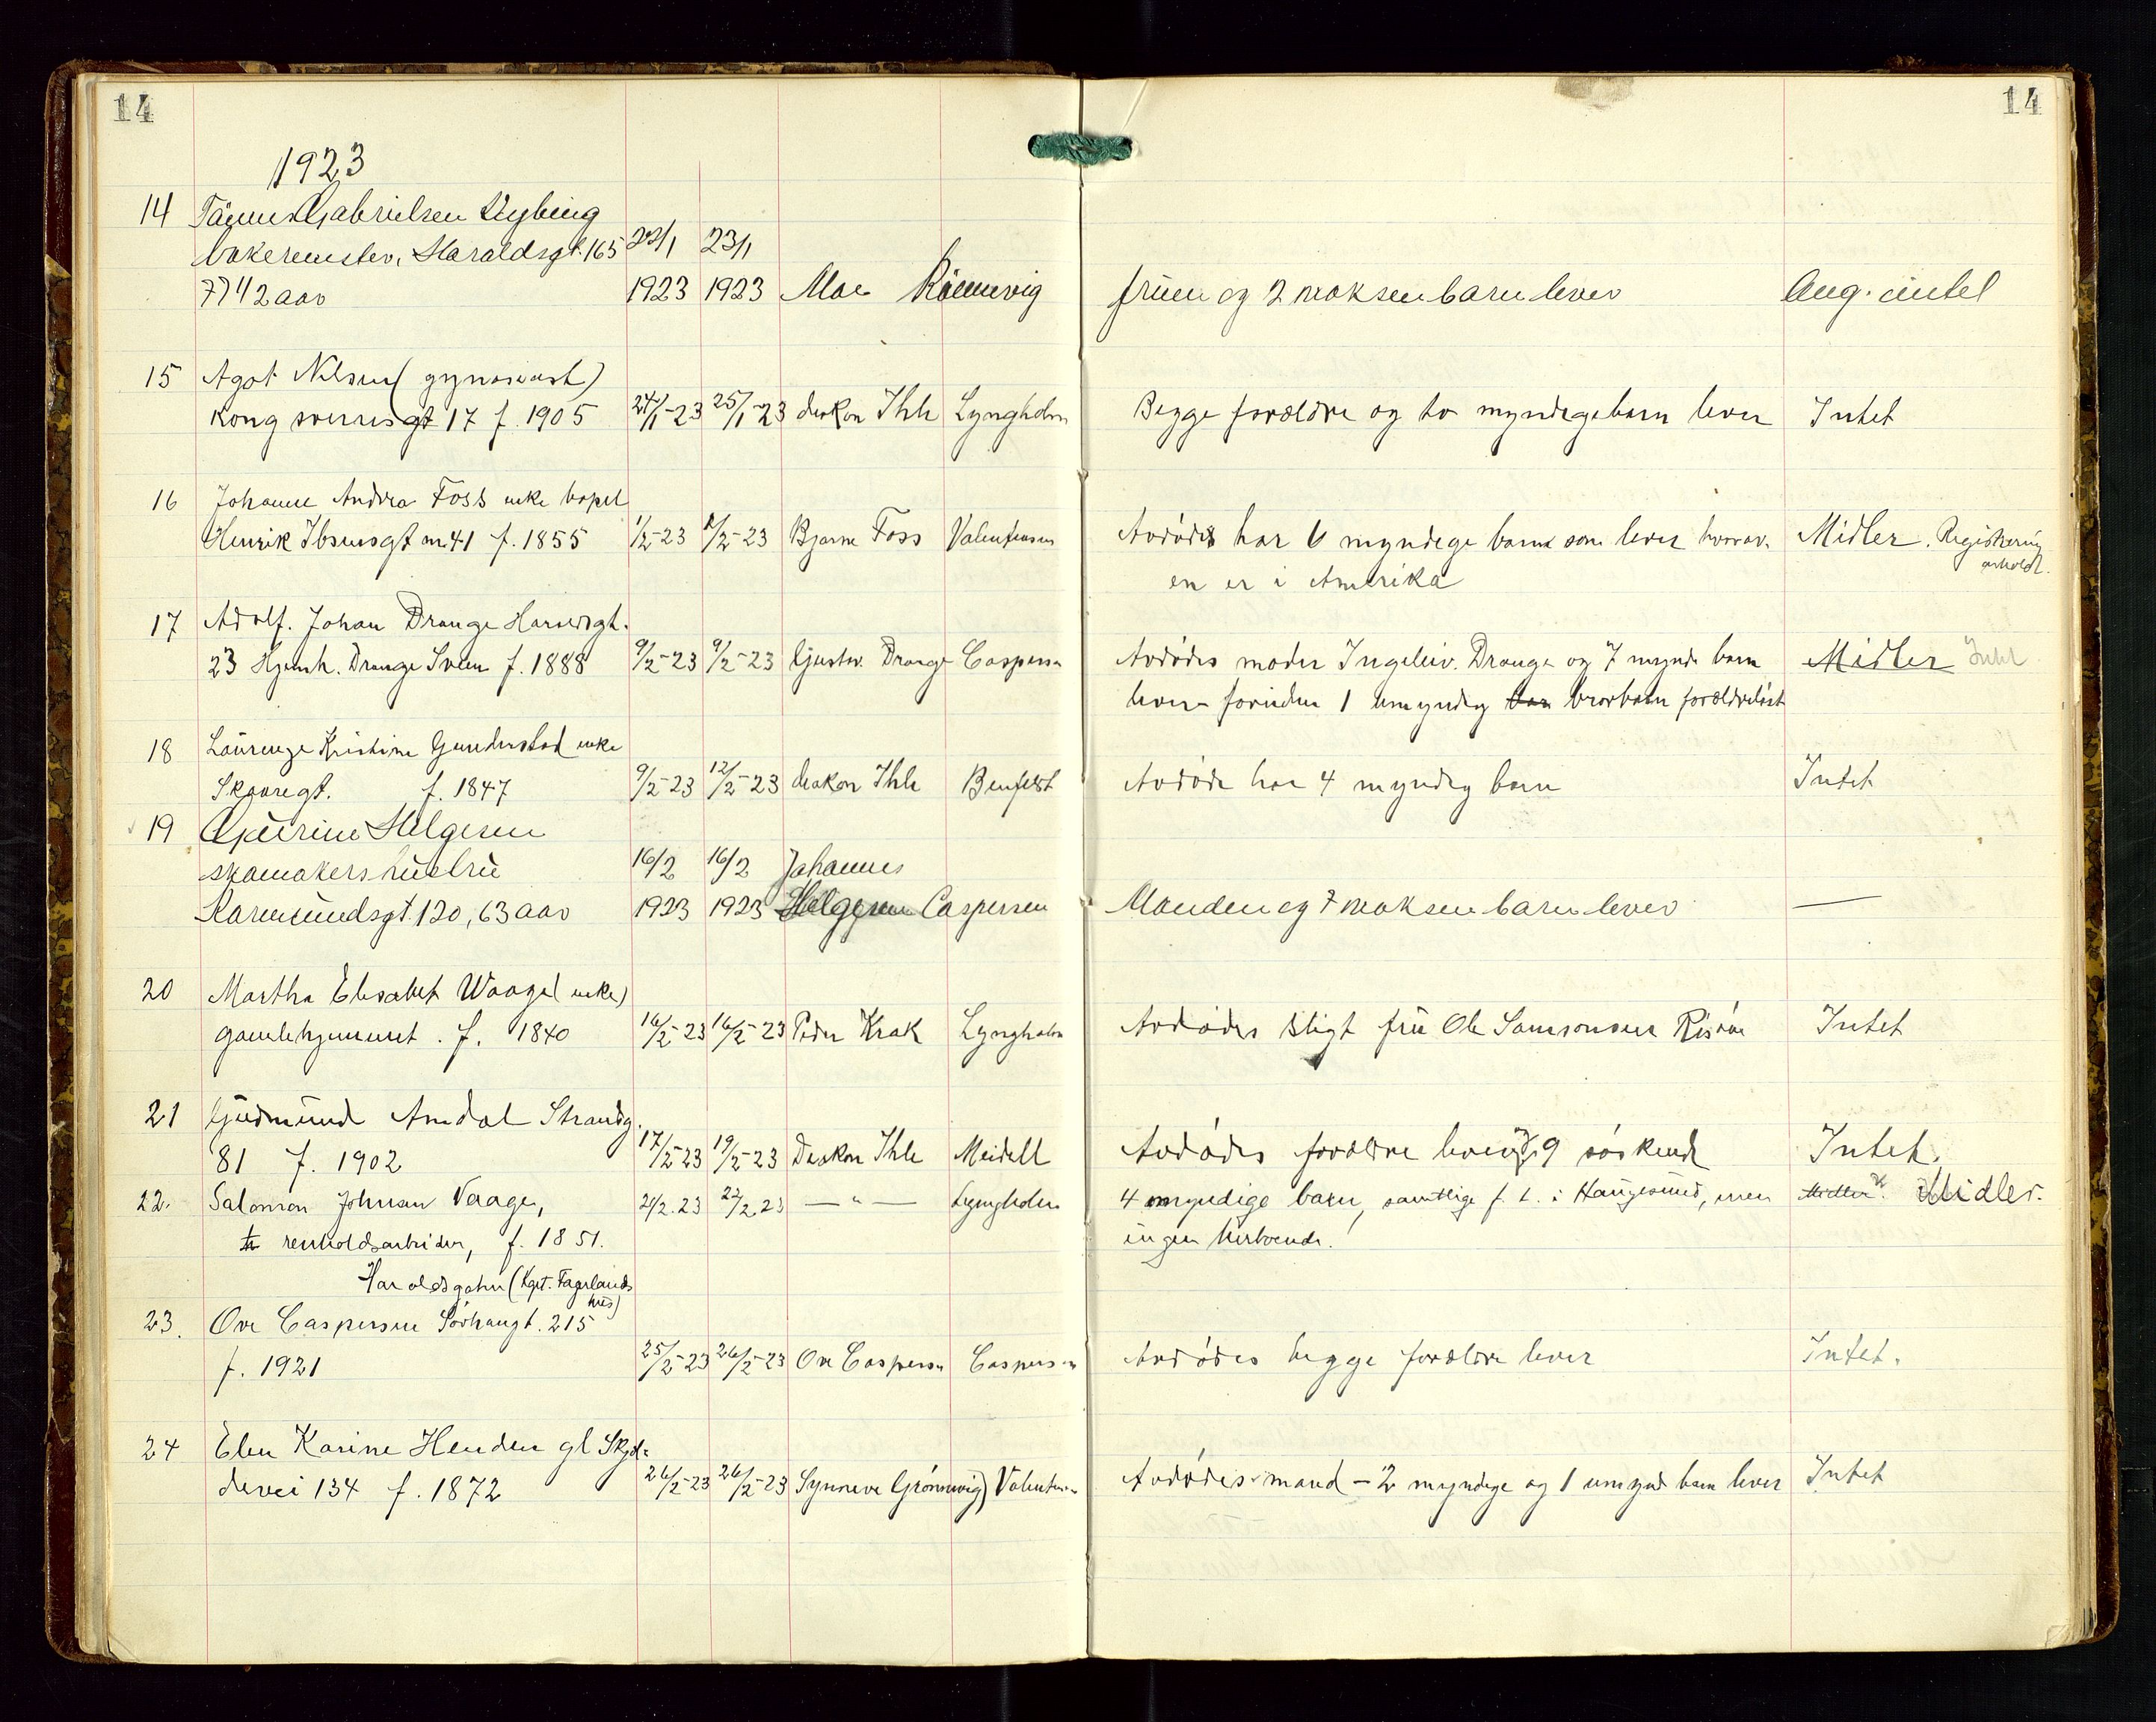 14
14
1923
14 Gabrielsen
bakermester, Haraldsgt. 165 22/1 23/1
42 aar 1923 1923 Moe fruen og 2 voksen barn lever Ang. intet
15 Agot Nilsen (gymnasiast)
Kong sverresgt 17 f. 1905 24/1-23 25/1-23 diakon Ihle Lyngholm Begge forældre og to myndige barn lever Intet
16 Johanne Andrea Foss enke bopel
Henrik Ibsensgt nr 41 f. 1855 1/2-23 2/2-23 Bjarne Foss Valentinsen Avdødes har 6 myndige barn som lever hvorav Midler. Registrering
avholdt.
en er i Amerika
17 Adolf. Johan Drange
23 Hjemh. Drange Sveen f. 1888 9/2-23 9/2-23 Gustav. Drange Caspersen Avdødes moder Ingeleiv. Drange og 7 mynd barn Midler Intet
lever foruden 1 umyndig bar brorbarn forældreløst
18 Laurenze Kristine Gunderstad enke
Skaaregt. f. 1847 9/2-23 12/2-23 diakon Ihle Benfeldt Avdøde har 4 myndig barn Intet
19 Gurine Helgesen
skomakershustru 16/2 16/2 Johannes
Karmsundsgt. 120, 63 aar 1923 1923 Helgesen Caspersen Manden og 7 voksen barn lever —
20 Martha Elisabet Waage (enke)
gamlehjemmet. f. 1840 16/2-23 16/2-23 Peder Krak Lyngholm Avdødes sligt fru Ole Samsonsen Risøen Intet
21 Gudmund Amdal Strandg.
81 f. 1902 17/2-23 19/2-23 Diakon Ihle Meidell Avdødes forældre lever og 9 søskende Intet.
22. Salomon Johnan Vaage, 21/2.23 22/2.23 — " — Lyngholm 4 myndige barn, samtlige f. t. i Haugesund, men Midler. Midler.
renholdsarbeider, f. 1851. ingen herboende.
Haraldsgaten (Kapt. Fagerlands
hus)
23. Ove Caspersen Sørhaugt. 215
f. 1921 25/2-23 26/2-23 Ove Caspersen Caspersen Avdødes begge forældre lever Intet.
24 Elen Karine Henden gl Skjol-
devei 134 f. 1872 26/2-23 26/2-23 Synneve Grønnevig) Valentinsen Avdødes mand - 2 myndige og 1 umynd barn lever Intet